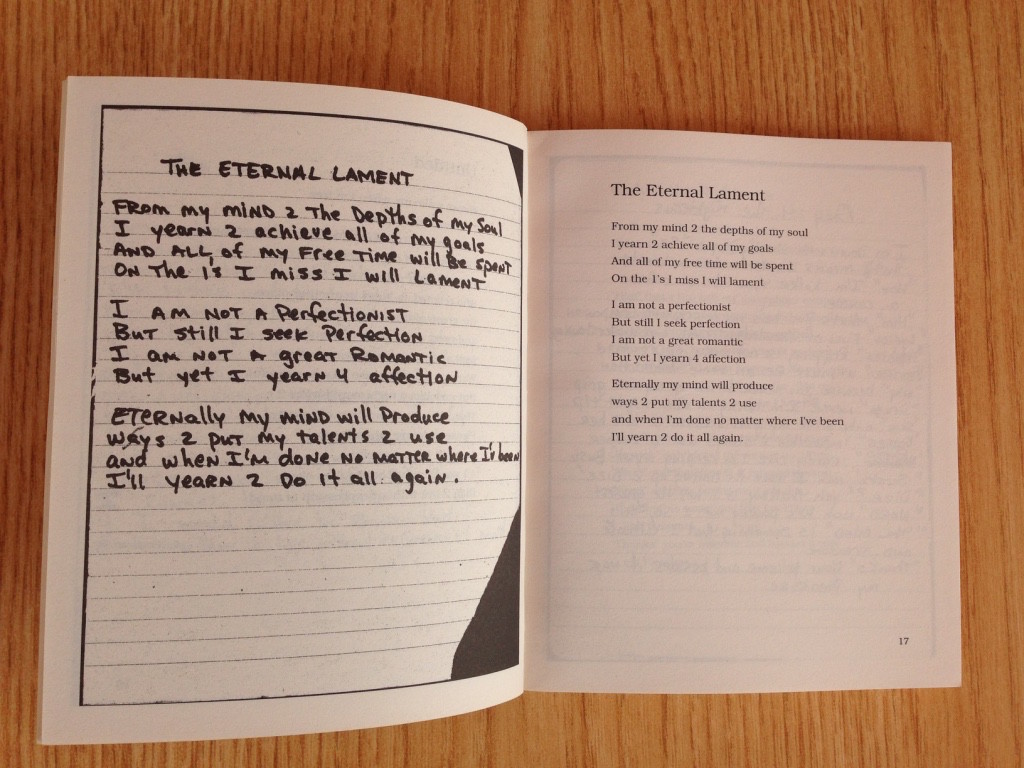 THE ETERNAL LAMENT
FROM my miND 2 The Depths of my Soul
I yearN 2 achieve all of my goals
AND ALL of my Free Time will Be spent
ON The 1's I miss I will LAMENT
I AM NOT A PerfecTIONIST
BuT still I seek PerfecTION
I am NOT A greaT RomanTic
BuT yeT I yearN 4 affecTION
ETERNally my miND will Produce
ways 2 puT my talents 2 use
and wheN I'M doNe NO MATTER where I'v been
I'll yearN 2 Do iT all again.
The Eternal Lament
From my mind 2 the depths of my soul
I yearn 2 achieve all of my goals
And all of my free time will be spent
On the 1's I miss I will lament
I am not a perfectionist
But still I seek perfection
I am not a great romantic
But yet I yearn 4 affection
Eternally my mind will produce
ways 2 put my talents 2 use
and when I'm done no matter where I've been
I'll yearn 2 do it all again.
17